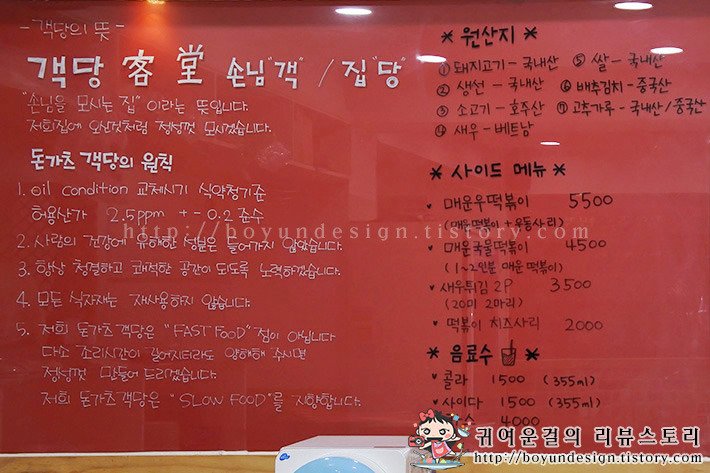 - 객당의 뜻 -
객당 客堂 손님"객" / 집"당"
"손님을 모시는 집" 이라는 뜻입니다.
저희집에 오신것처럼 정성껏 모시겠습니다.
돈가츠 객당의 원칙
1. oil condition 교체시기 식약청기준
허용산가 2.5ppm +- 0.2 준수
2. 사람의 건강에 유해한 성분은 들어가지 않았습니다.
3. 항상 청결하고 쾌적한 공간이 되도록 노력하겠습니다.
4. 모든 식자재는 재사용하지 않습니다.
5. 저희 돈가츠객당은 "FAST FOOD"점이 아닙니다
다소 조리시간이 길어지더라도 양해해 주시면
정성껏 만들어 드리겠습니다.
저희 돈가츠객당은 "SLOW FOOD"를 지향합니다.
* 원산지 *
① 돼지고기 - 국내산 ⑤ 쌀 - 국내산
② 생선 - 국내산 ⑥ 배추김치 - 중국산
③ 소고기 - 호주산 ⑦ 고추가루 - 국내산/중국산
④ 새우 - 베트남
* 사이드 메뉴 *
매운우떡볶이 5500
(매운떡볶이 + 우동사리)
매운국물떡볶이 4500
(1~2인분 매운 떡볶이)
새우튀김 2P 3500
(20미 2마리)
떡볶이 치즈사리 2000
* 음료수 *
콜라 1500 (355ml)
사이다 1500 (355ml)
4000
http://boyundesign.tistory.com
귀여운걸의 리뷰스토리
http://boyundesign.tistory.com